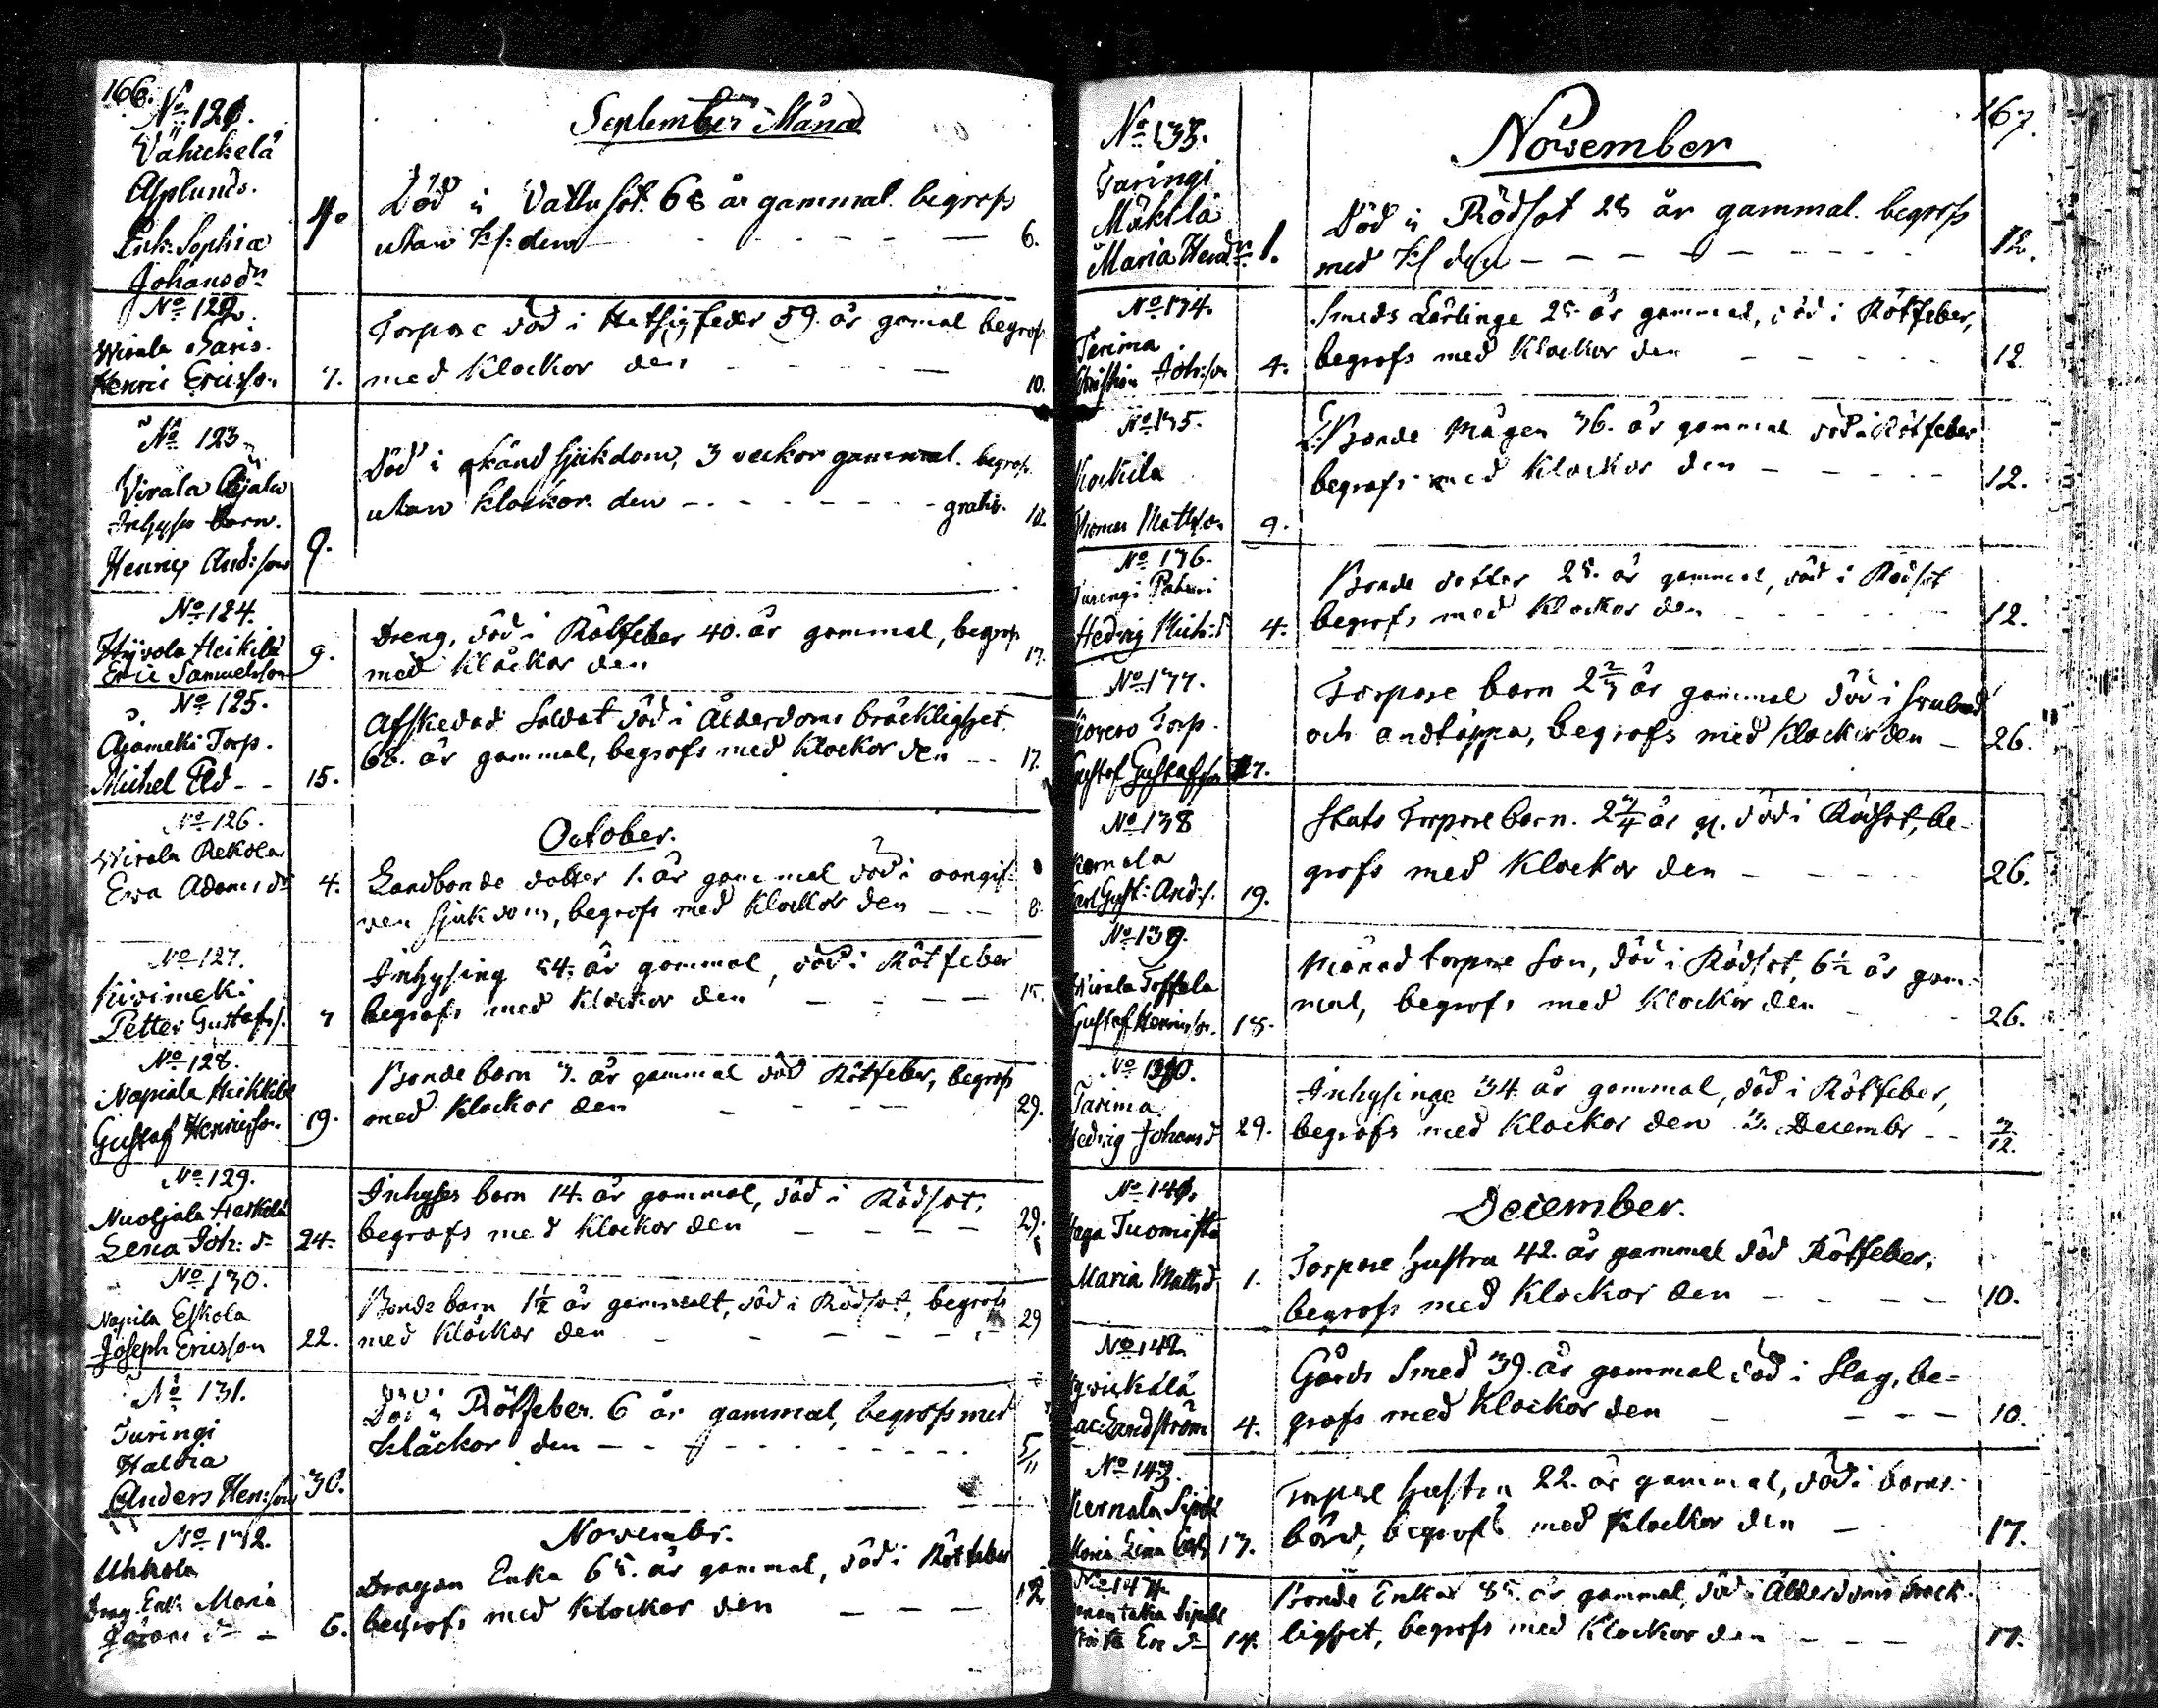 166.
September Månad
No 121.
Vähickelä
Asplunds.
Enk: Sophia
Johansdr
4.
Död i Vattusot. 68 år gammal. begrofs
utan kl: den
6.
No 122.
Wirala Saris.
Henric Ericsson
7.
Torpare död i Hetsigfeber 59. år gamal begrofs
med Klockor den
10.
No 123
Virala Ojala
Inhyses barn.
Henric And:son
9.
Död i okänd sjukdom, 3 veckor gammal. begrofs
utan klockor. den gratis.
10.
No 124.
Hyvola Heikilä
Eric Samuelsson
9.
Dreng, död i Rötfeber 40. år gammal, begrofs
med Klåckor den
17.
No 125.
Ojameki Torp.
Michel Eld
15.
Afskedad Soldat död i Ålderdoms bräcklighet,
68. år gammal, begrofs med Klockor den
17.
October.
No 126.
Wirala Rekola
Ewa Adams dr
4.
Landbonde dotter 1. år gammal död i oangif-
ven sjukdom, begrofs med Klockor den
8.
No 127.
Kivimeki
Petter Gustafss.
7
Inhysing 54. år gammal, död i Rötfeber
begrofs med Klockor den
15.
No 128.
Napiala Heikkilä
Gustaf Henricsson.
19.
Bonde barn 3. år gammal död Rötfeber, begrofs
med Klockor den
29.
No 129.
Nuoljala Heikkilä
Lena Joh: d
24.
Inhyses barn 14. år gammal, död i Rödsot,
begrofs med Klockor den
29.
No 130.
Napila Eskola
Joseph Ericsson
22.
Bonde barn 1½ år gammalt, död i Rödsot, begrofs
med Klockor den
29
No 131.
Turingi
Haldia
Anders Hen:son
30.
Död i Rötfeber. 6 år gammal, begrofs med
klåckor den
5/11
Novembr.
No 132.
Uhkola
Drag. Enk. Maria
6.
Dragon Enka 65. år gammal, död i Rötfeber
begrofs med Klockor den
12
167.
November
No 133.
Turingi
Mäkilä
Maria Hendr
1.
Död i Rödsot 28 år gammal. begrofs
med kl den
12.
No 134.
Tarima
Christian Joh:son
4.
Smeds Lärlinge 25. år gammal, död i Rötfeber,
begrofs med Klockor den
12
No 135.
Kockila
Thomas Mattsson
9.
Bonde Mågen 36. år gammal död i Rötfeber
begrofs med Klockor den
12.
No 136.
Turengi
Hedvig Mich:d
4.
Bonde dotter 25. år gammal, död i Rödsot
begrofs med Klockor den
12.
No 137.
Torp.
Gustaf Gustafsson
17.
Torpare barn 2 2/3 år gammal död i
och andtäppa, begrofs med Klockor den
26.
No 138
Kernala
Carl Gust: And:s.
19.
Stats Torpare barn. 2¾ år g. död i Rödsot, be-
grofs med Klockor den
26.
No 139.
Wirala Toffola
Gustaf Henricsson.
18.
Månad torpare Son, död i Rödsot, 6½ år gam-
mal, begrofs med Klockor den
26.
No 140.
Tarima
Hedvig Johansd
29.
Inhysinge 34 år gammal, död i Rötfeber,
begrofs med Klockor den 3. Decembr
3/12.
December.
No 141.
Haga Tuomisto
Maria Mattsd
1.
Torpare hustru 42. år gammal död Rötfeber,
begrofs med Klockor den
10.
No 142
Landström
4.
Gårds Smed 39. år gammal död i Slag, be-
grofs med Klockor den
10.
No 143.
Kernala
Maria Lena
13.
Torpare hustru 22. år gammal, död i barns-
börd, begrofs med Klockor den
17.
No 144.
14.
Bonde Enka 85. år gammal, död i Ålderdoms bräck-
lighet, begrofs med Klockor den
17.